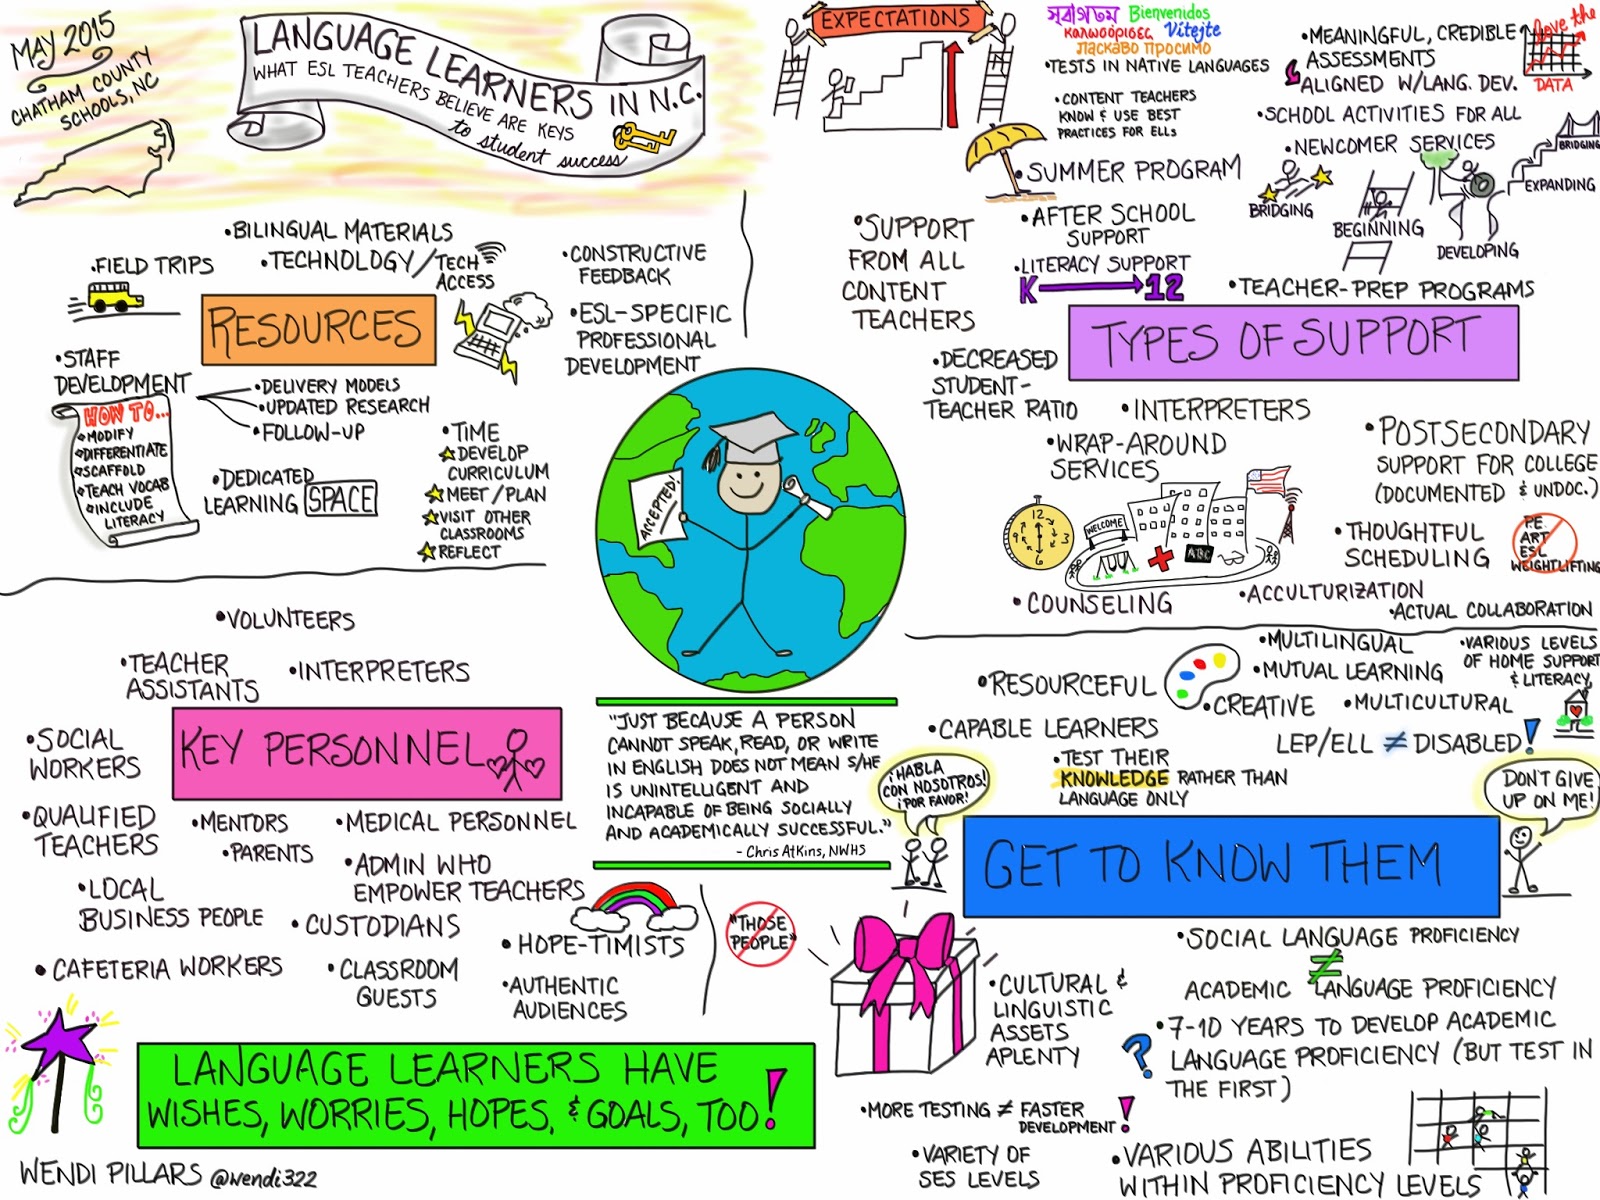 MAY 2015
CHATHAM COUNTY
SCHOOLS, NC
LANGUAGE LEARNERS IN N.C.
WHAT ESL TEACHERS BELIEVE ARE KEYS
to student success
EXPECTATIONS
Bienvenidos
Vítejte
ласкаво просимо
•TESTS IN NATIVE LANGUAGES
•CONTENT TEACHERS
KNOW & USE BEST
PRACTICES FOR ELLS
•SUMMER PROGRAM
•AFTER SCHOOL
SUPPORT
•LITERACY SUPPORT
K 12
•SUPPORT
FROM ALL
CONTENT
TEACHERS
•MEANINGFUL, CREDIBLE
ASSESSMENTS
ALIGNED W/LANG. DEV.
love the
DATA
•SCHOOL ACTIVITIES FOR ALL
•NEWCOMER SERVICES
BRIDGING
BEGINNING
DEVELOPING
EXPANDING
BRIDGING
•TEACHER-PREP PROGRAMS
TYPES OF SUPPORT
•DECREASED
STUDENT-
TEACHER RATIO
•INTERPRETERS
•WRAP-AROUND
SERVICES
WELCOME
ABC
12
3
6
9
•POSTSECONDARY
SUPPORT FOR COLLEGE
(DOCUMENTED & UNDOC.)
•THOUGHTFUL
SCHEDULING
P.E.
ART
ESL
WEIGHTLIFTING
•COUNSELING
•ACCULTURIZATION
•ACTUAL COLLABORATION
•BILINGUAL MATERIALS
•TECHNOLOGY/TECH
ACCESS
•FIELD TRIPS
RESOURCES
•CONSTRUCTIVE
FEEDBACK
•ESL-SPECIFIC
PROFESSIONAL
DEVELOPMENT
•STAFF
DEVELOPMENT
•DELIVERY MODELS
•UPDATED RESEARCH
•FOLLOW-UP
HOW TO...
MODIFY
DIFFERENTIATE
SCAFFOLD
TEACH VOCAB
INCLUDE
LITERACY
•DEDICATED
LEARNING SPACE
•TIME
DEVELOP
CURRICULUM
MEET/PLAN
VISIT OTHER
CLASSROOMS
REFLECT
ACCEPTED!
•VOLUNTEERS
•TEACHER
ASSISTANTS
•INTERPRETERS
•SOCIAL
WORKERS
KEY PERSONNEL
•QUALIFIED
TEACHERS
•MENTORS
•PARENTS
•MEDICAL PERSONNEL
•ADMIN WHO
EMPOWER TEACHERS
•LOCAL
BUSINESS PEOPLE
•CUSTODIANS
•HOPE-TIMISTS
•CAFETERIA WORKERS
•CLASSROOM
GUESTS
•AUTHENTIC
AUDIENCES
"JUST BECAUSE A PERSON
CANNOT SPEAK, READ, OR WRITE
IN ENGLISH DOES NOT MEAN S/HE
IS UNINTELLIGENT AND
INCAPABLE OF BEING SOCIALLY
AND ACADEMICALLY SUCCESSFUL."
- Chris Atkins, NWHS
"THOSE
PEOPLE"
•MULTILINGUAL
•MUTUAL LEARNING
•VARIOUS LEVELS
OF HOME SUPPORT
& LITERACY
•RESOURCEFUL
•CREATIVE
•MULTICULTURAL
•CAPABLE LEARNERS
LEP/ELL ≠ DISABLED!
•TEST THEIR
KNOWLEDGE RATHER THAN
LANGUAGE ONLY
¡HABLA
CON NOSOTROS!
¡POR FAVOR!
DON'T GIVE
UP ON ME!
GET TO KNOW THEM
•SOCIAL LANGUAGE PROFICIENCY
≠
ACADEMIC LANGUAGE PROFICIENCY
•CULTURAL &
LINGUISTIC
ASSETS
APLENTY
?
•7-10 YEARS TO DEVELOP ACADEMIC
LANGUAGE PROFICIENCY (BUT TEST IN
THE FIRST)
•MORE TESTING ≠ FASTER
DEVELOPMENT!
•VARIETY OF
SES LEVELS
•VARIOUS ABILITIES
WITHIN PROFICIENCY LEVELS
LANGUAGE LEARNERS HAVE
WISHES, WORRIES, HOPES, & GOALS, TOO!
WENDI PILLARS @wendi322